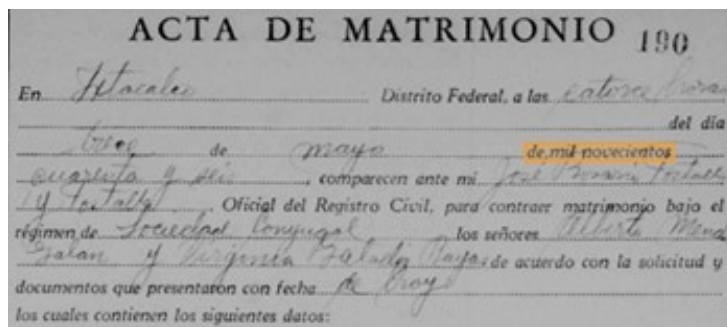 ACTA DE MATRIMONIO 190
En Ixtacalco Distrito Federal, a las catorce horas
del día
trece de mayo de mil novecientos
cuarenta y seis, comparecen ante mi José
y, Oficial del Registro Civil, para contraer matrimonio bajo el
régimen de Sociedad Conyugal los señores Alberto
Galan y Virginia de acuerdo con la solicitud y
documentos que presentaron con fecha de hoy
los cuales contienen los siguientes datos: